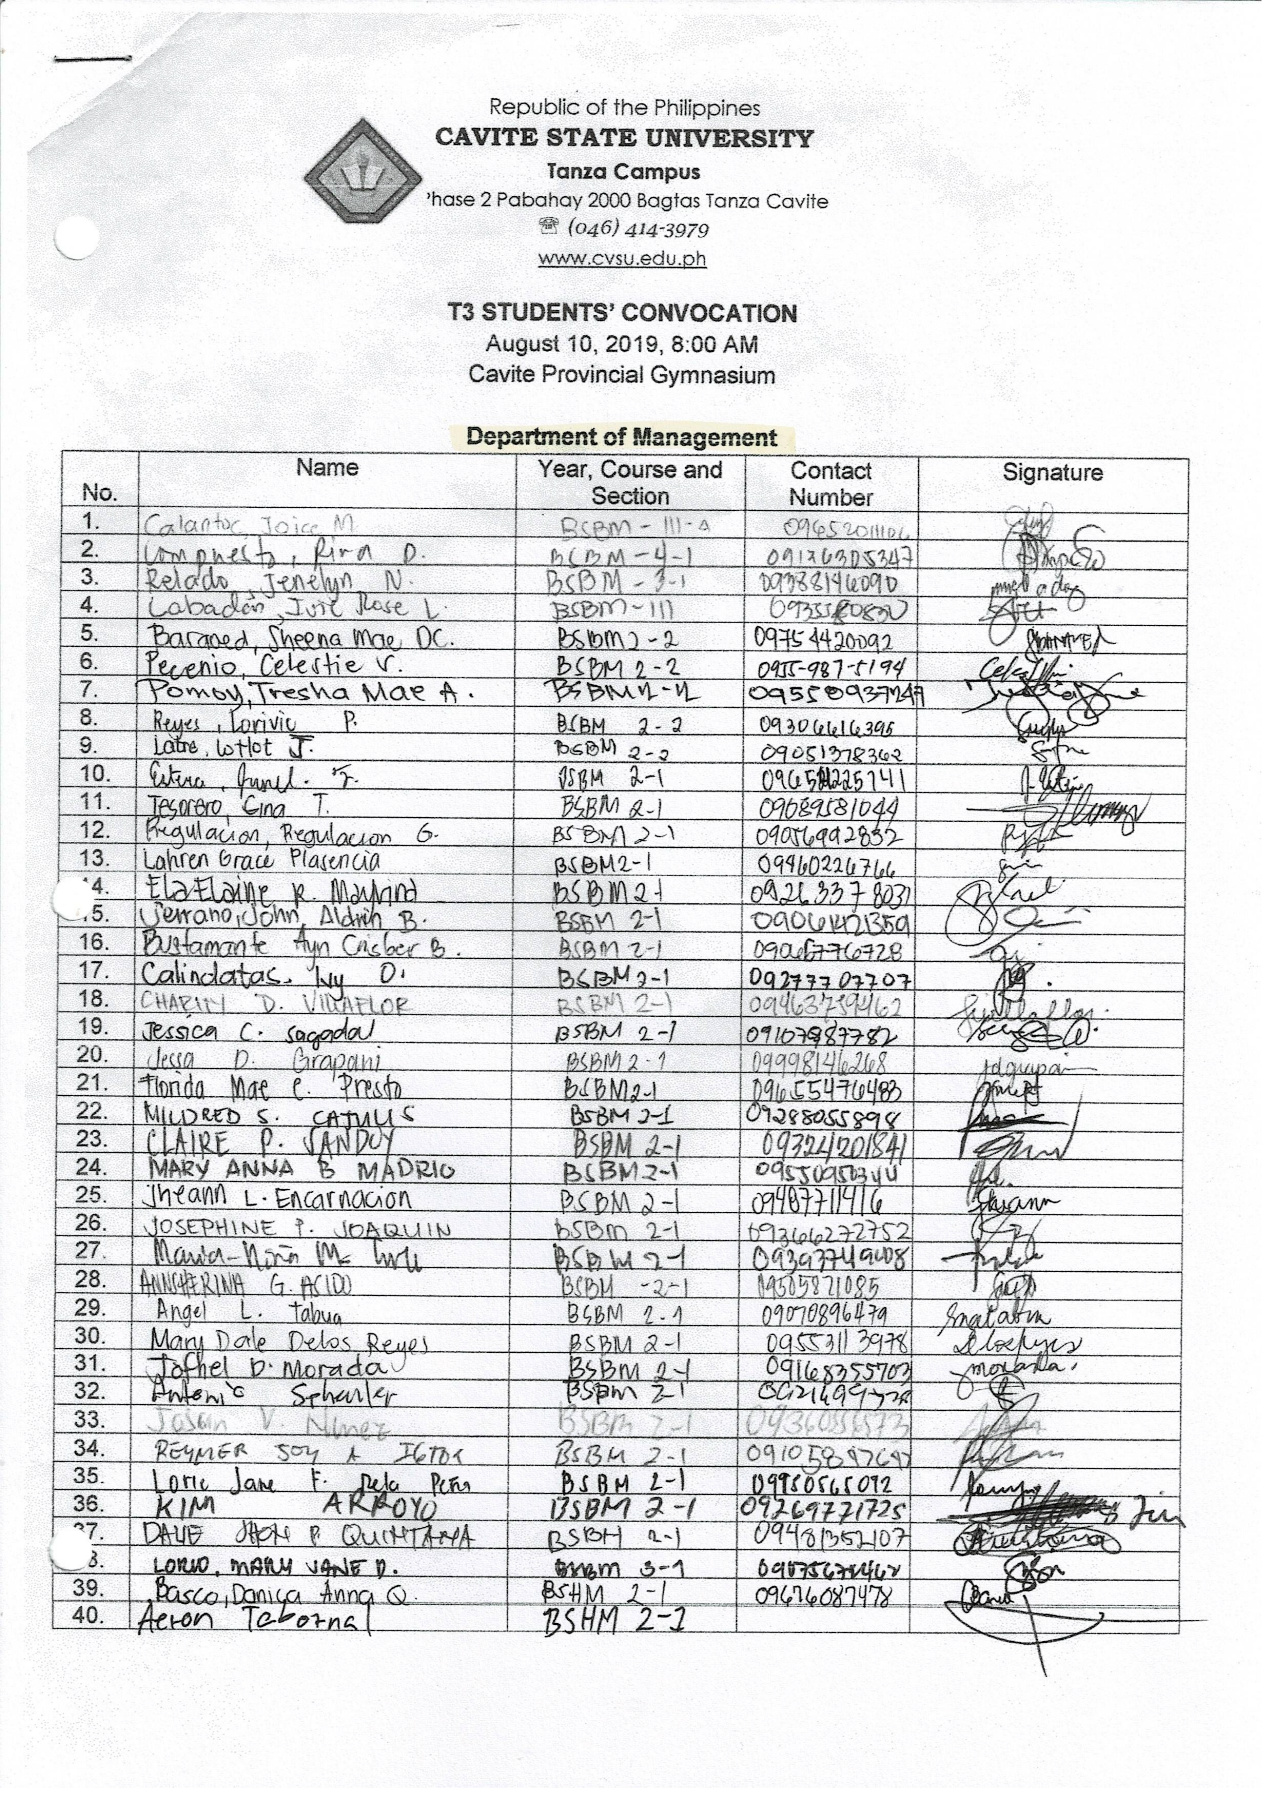 Republic of the Philippines
CAVITE STATE UNIVERSITY
Tanza Campus
'hase 2 Pabahay 2000 Bagtas Tanza Cavite
☏ (046) 414-3979
www.cvsu.edu.ph
T3 STUDENTS' CONVOCATION
August 10, 2019, 8:00 AM
Cavite Provincial Gymnasium
Department of Management
No. Name Year, Course and Section Contact Number Signature
1. Calantoc, Joice M BSBM - III-A 09652011106
2. Compuesto, Rina D. BSBM - 4-1 09126305347
3. Relado, Jenelyn N. BSBM - 3-1 09388146090
4. Labadan, Rose L. BSBM - III
5. Baraned, Sheena Mae DC. BSBM 2-2 09754420092
6. Pecenio, Celestie V. BSBM 2-2 0955-987-5194
7. Pomoy, Tresha Mae A. BSBM 2-2 09550937247
8. Reyes, Lorivic P. BSBM 2-2 09306616395
9. Latre, Lotlot J. BSBM 2-2 09051378362
10. BSBM 2-1
11. Tesorero, Gina T. BSBM 2-1 09089581044
12. Regulacion, Regulacion G. BSBM 2-1 09056992832
13. Lahren Grace Plasencia BSBM 2-1 09460226766
14. Ela Elaine R. BSBM 2-1 09263378031
15. Serrano, John Aldrin B. BSBM 2-1 09061421359
16. Bustamante Ayn Crisber B. BSBM 2-1
17. Calindatas, Ivy O. BSBM 2-1 09277707707
18. CHARITY D. VILLAFLOR BSBM 2-1 09463759462
19. Jessica C. Sagadal BSBM 2-1 09107987782
20. Jessa D. Grapani BSBM 2-1 09998146268 jdgrapani
21. Florida Mae C. Presto BSBM 2-1 09655476483
22. MILDRED S. CATULUS BSBM 2-1 09288055898
23. CLAIRE P. SANDOY BSBM 2-1 09324201841
24. MARY ANNA B MADRIO BSBM 2-1 09550950344
25. Jheann L. Encarnacion BSBM 2-1 09487711416 Jheann
26. JOSEPHINE P. JOAQUIN BSBM 2-1 09366272752
27. BSBM 2-1 09397749608
28. ANNSHERINA G. ASIDO BSBM -2-1 09505871085
29. Angel L. Tabua BSBM 2-1 09070896479
30. Mary Dale Delos Reyes BSBM 2-1 09553113978
31. Jophel D. Morada BSBM 2-1 09168355703 morada.
32. Antonio BSBM 2-1
33. V. BSBM 2-1
34. REYMER JOY A BSBM 2-1
35. Loric Jane F. Dela Peña BSBM 2-1 09950565092
36. KIM ARROYO BSBM 2-1 09269771725 Jim
37. DAVE JHON P QUINTANA BSBM 2-1 09481352107
38. MARY JANE D. 3-1
39. Basco, Danica Anna Q. BSHM 2-1 09676087478
40. Aeron Tabornal BSHM 2-1